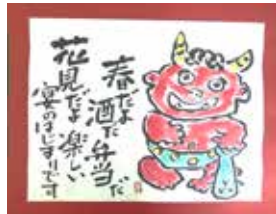 春だよ
酒だ弁当だ
花見だよ楽しい
宴のはじまりです